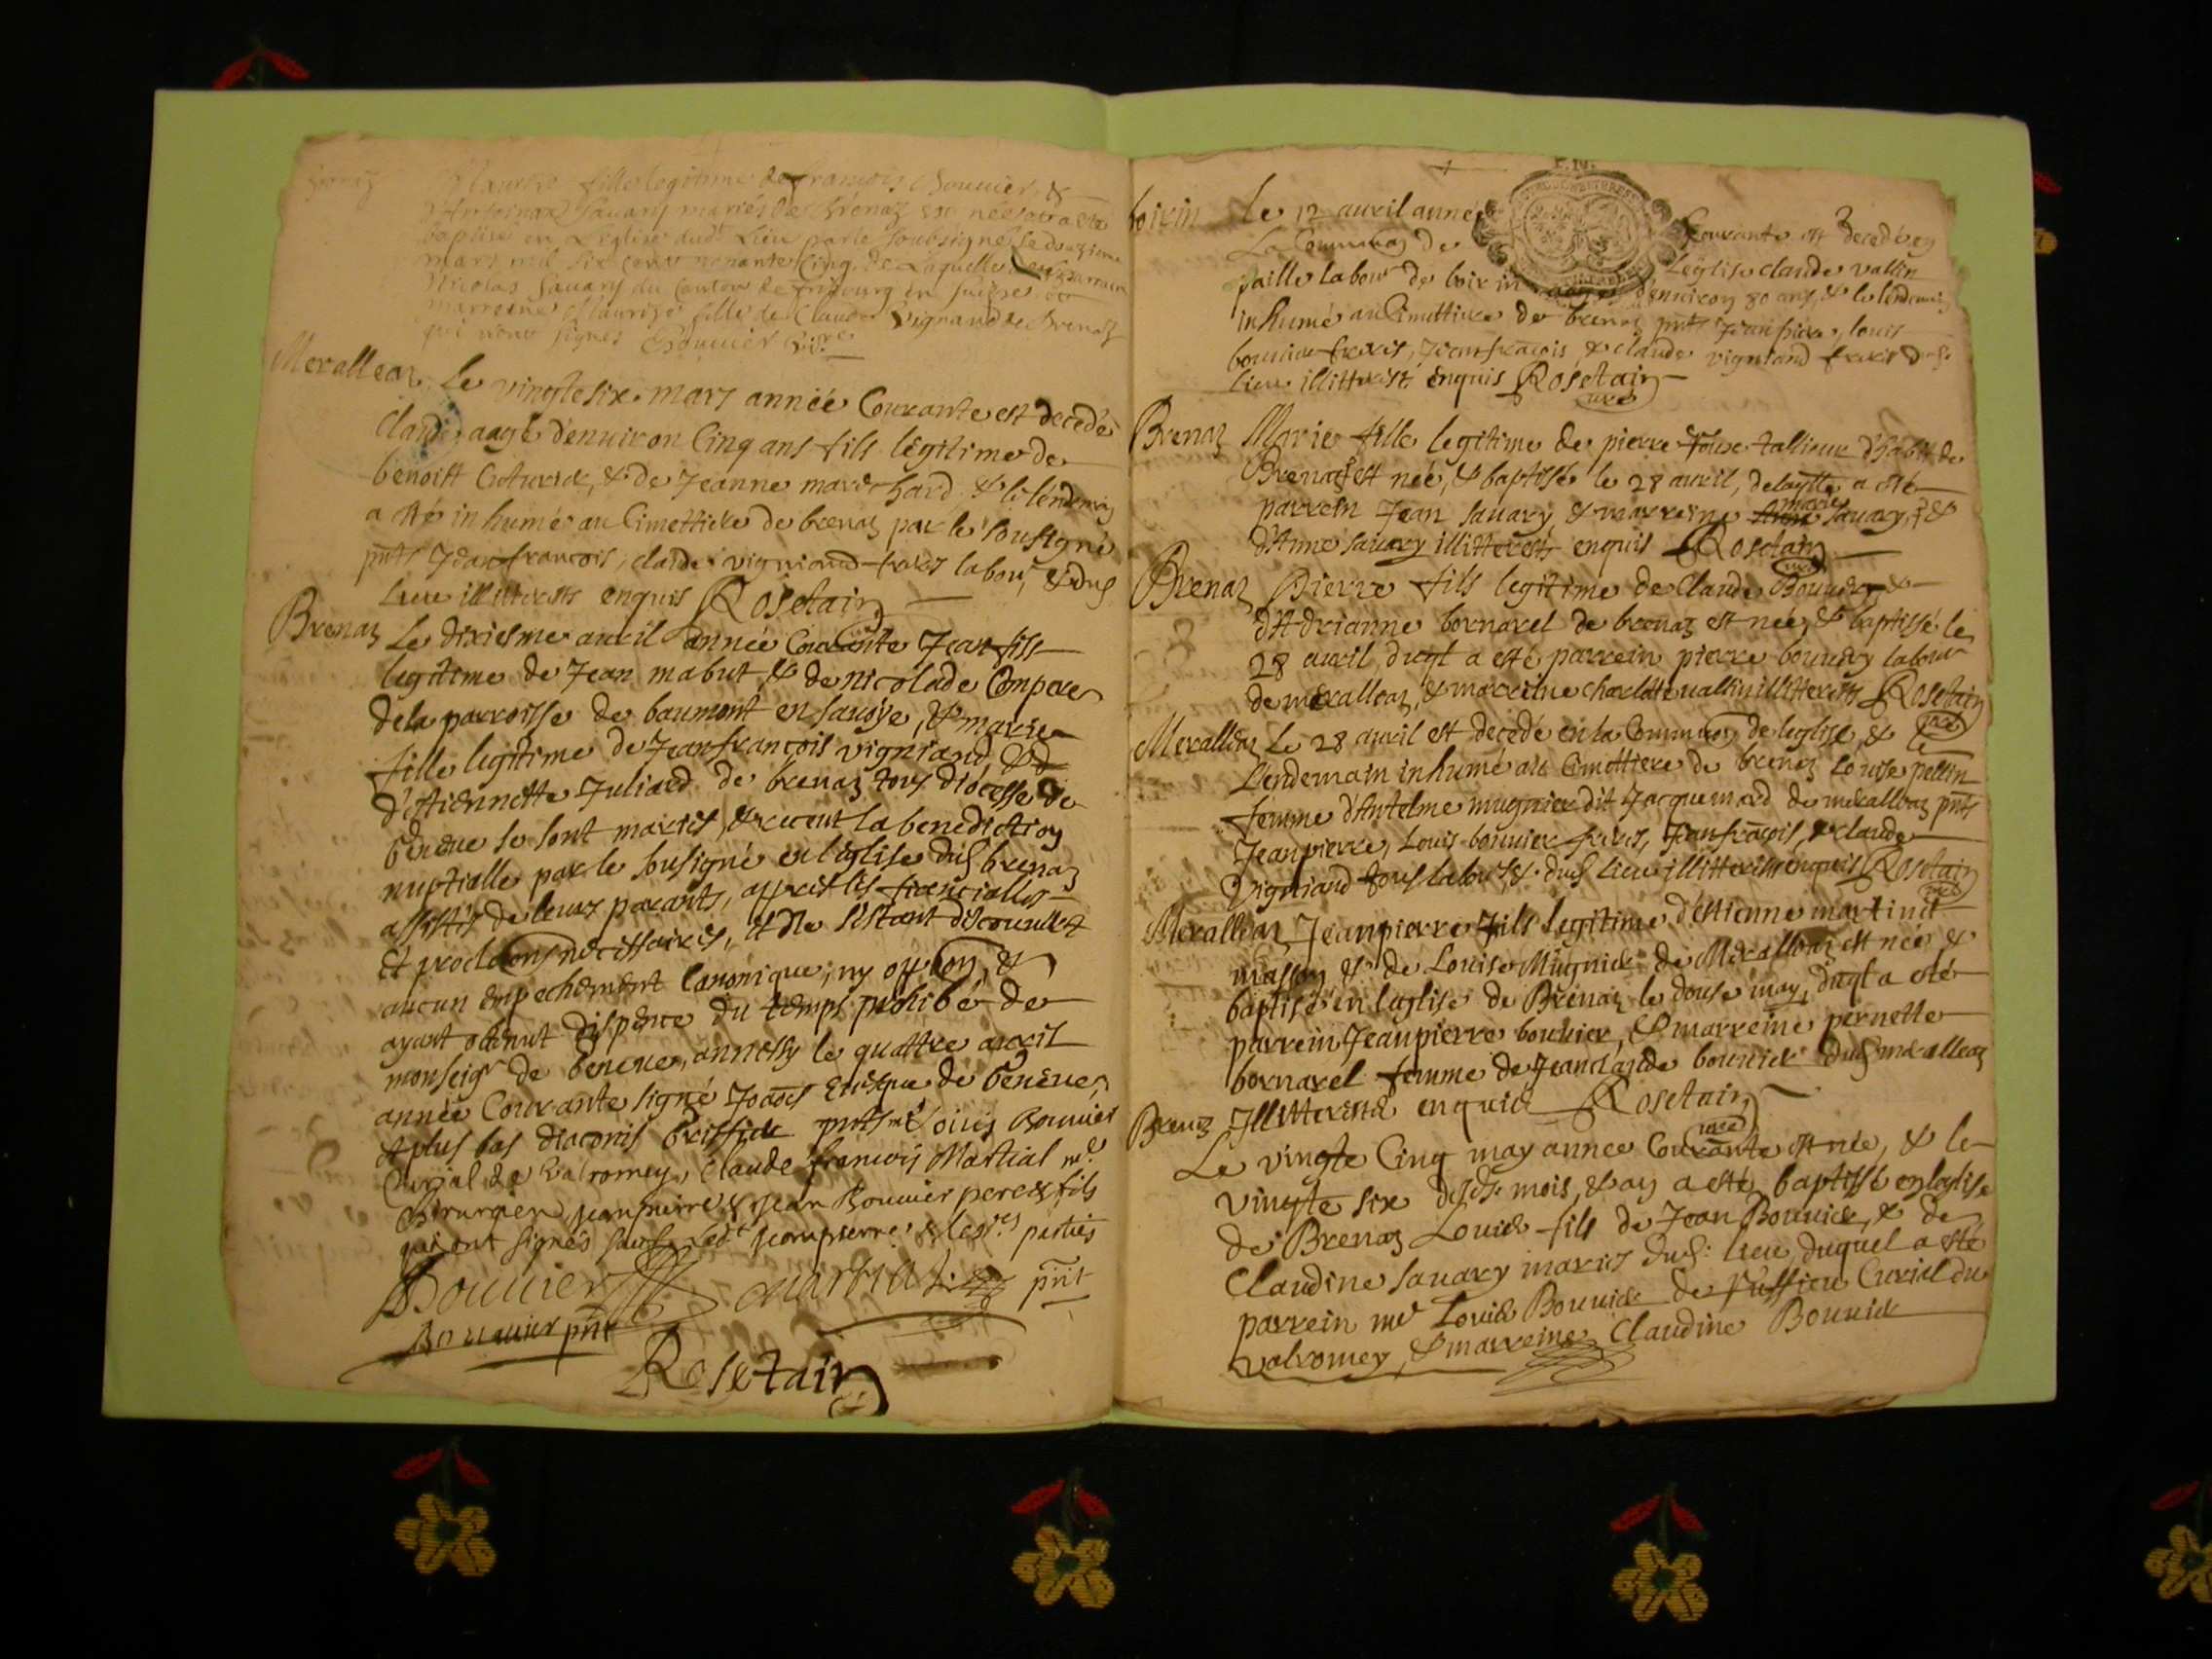 fille legitime de francois Bouuier &
Sauary mariés de brenaz est née et a esté
baptisé en l'eglise dud.t Lieu par le soubsigné
mars mil six cent nonante cinq de Laquelle
Nicolas Sauary du Canton de fribourg en suisse
marreine Maurize fille de Claude Vignand de brenaz
signés Bouuier
Meralleaz Le vingte six mars année Courante est decedé
Claude aagé d'enuiron Cinq ans fils legitime de
benoist & de Jeanne marechard & le lendemain
a esté inhumé au Cimettiere de brenaz par le sousigné
pnts Jeanfrancois, claude vigniand freres labour,
Lieu illitterests enquis Rosetain
Brenaz Le dixiesme auril année Courante Jean fils
legitime de Jean mabut & de nicolade Compere
dela parroisse de baumont en sauoye, & marie
fille legitime de Jeanfrancois vigniand
d'Estiennette Juliard de brenaz tous diocesse de
Geneue se sont mariés, & receut la benediction
nuptialle par le sousigné en l'eglise dud brenaz
assistés de leurs parants, apres les fiancialles
et necessaires, et ne s'estant discouuert
aucun empechement Canonique, ny oppon, &
ayant obtenut dispence du temps prohibé de
monseigr de Geneue, annessy le quattre auril
année Courante signé Joaos euesque de Geneue,
& plus bas diaconis pnts me Louis Bouuier
Curial de Valromey, Claude francois Martial me
Chirurgien jeanpierre & jean Bouuier pere & fils
qui ont signés sauf led.t jeanpierre & les parties
Bouuier Martial pnt
Bouuier pnt
Rosetain
boirin Le 12 auril année Courante est decedé en
La Commun de L'eglise claude vallin
paille labour de boirin aagé d'enuiron 80 ans, & le lendemain
inhumé au Cimettiere de brenaz pnts Jeanpierre, louis
bouuier freres, Jeanfrancois & claude vigniand freres dud.
lieu illitterests enquis Rosetain
Brenaz Marie fille legitime de pierre tallieur d'habit de
Brenaz est née, & baptisé le 28 auril, delaqlle a esté
parrein Jean Sauary, & marreine marie Sauary, &
d'Anne Sauary illitterests enquis Rosetain
Brenaz Pierre fils legitime de Claude Boundry &
d'Adrianne bornarel de brenaz est née, & baptissé le
28 auril, duql a esté parrein pierre boundry labour
de meralleaz, & marreine charlotte vallin illitterests Rosetain
Meralleaz Le 28 auril est decedé en la Commun de leglise, & le
Lendemain inhumé au Cimettiere de brenaz Louise pellin
femme d'Antelme mugnier dit Jacquemard de meralleaz pnts
Jeanpierre, Louis bouuier freres, Jeanfrancois, & claude
vigniand tous labours dud lieu illitterests enquis Rosetain
Meralleaz Jeanpierre fils legitime d'estienne martinet
masson & de Louise Mugnier de Meralleaz est née &
baptisé en leglise de Brenaz le douse may, duql a esté
parrein Jeanpierre bouuier, & marreine pernette
bornarel femme de Jeanclaude bouuier dud meralleaz
Brenaz Illitterests enquis Rosetain
Le vingte Cinq may année Courante est née, & le
vingte six dud. mois, & an a esté baptissé en leglise
de Brenaz Louis fils de Jean Bouuier, & de
Claudine Sauary mariés dud: lieu duquel a esté
parrein me Louis Bouuier de Ruffieu Curial du
valromey, & marreine Claudine Bouuier